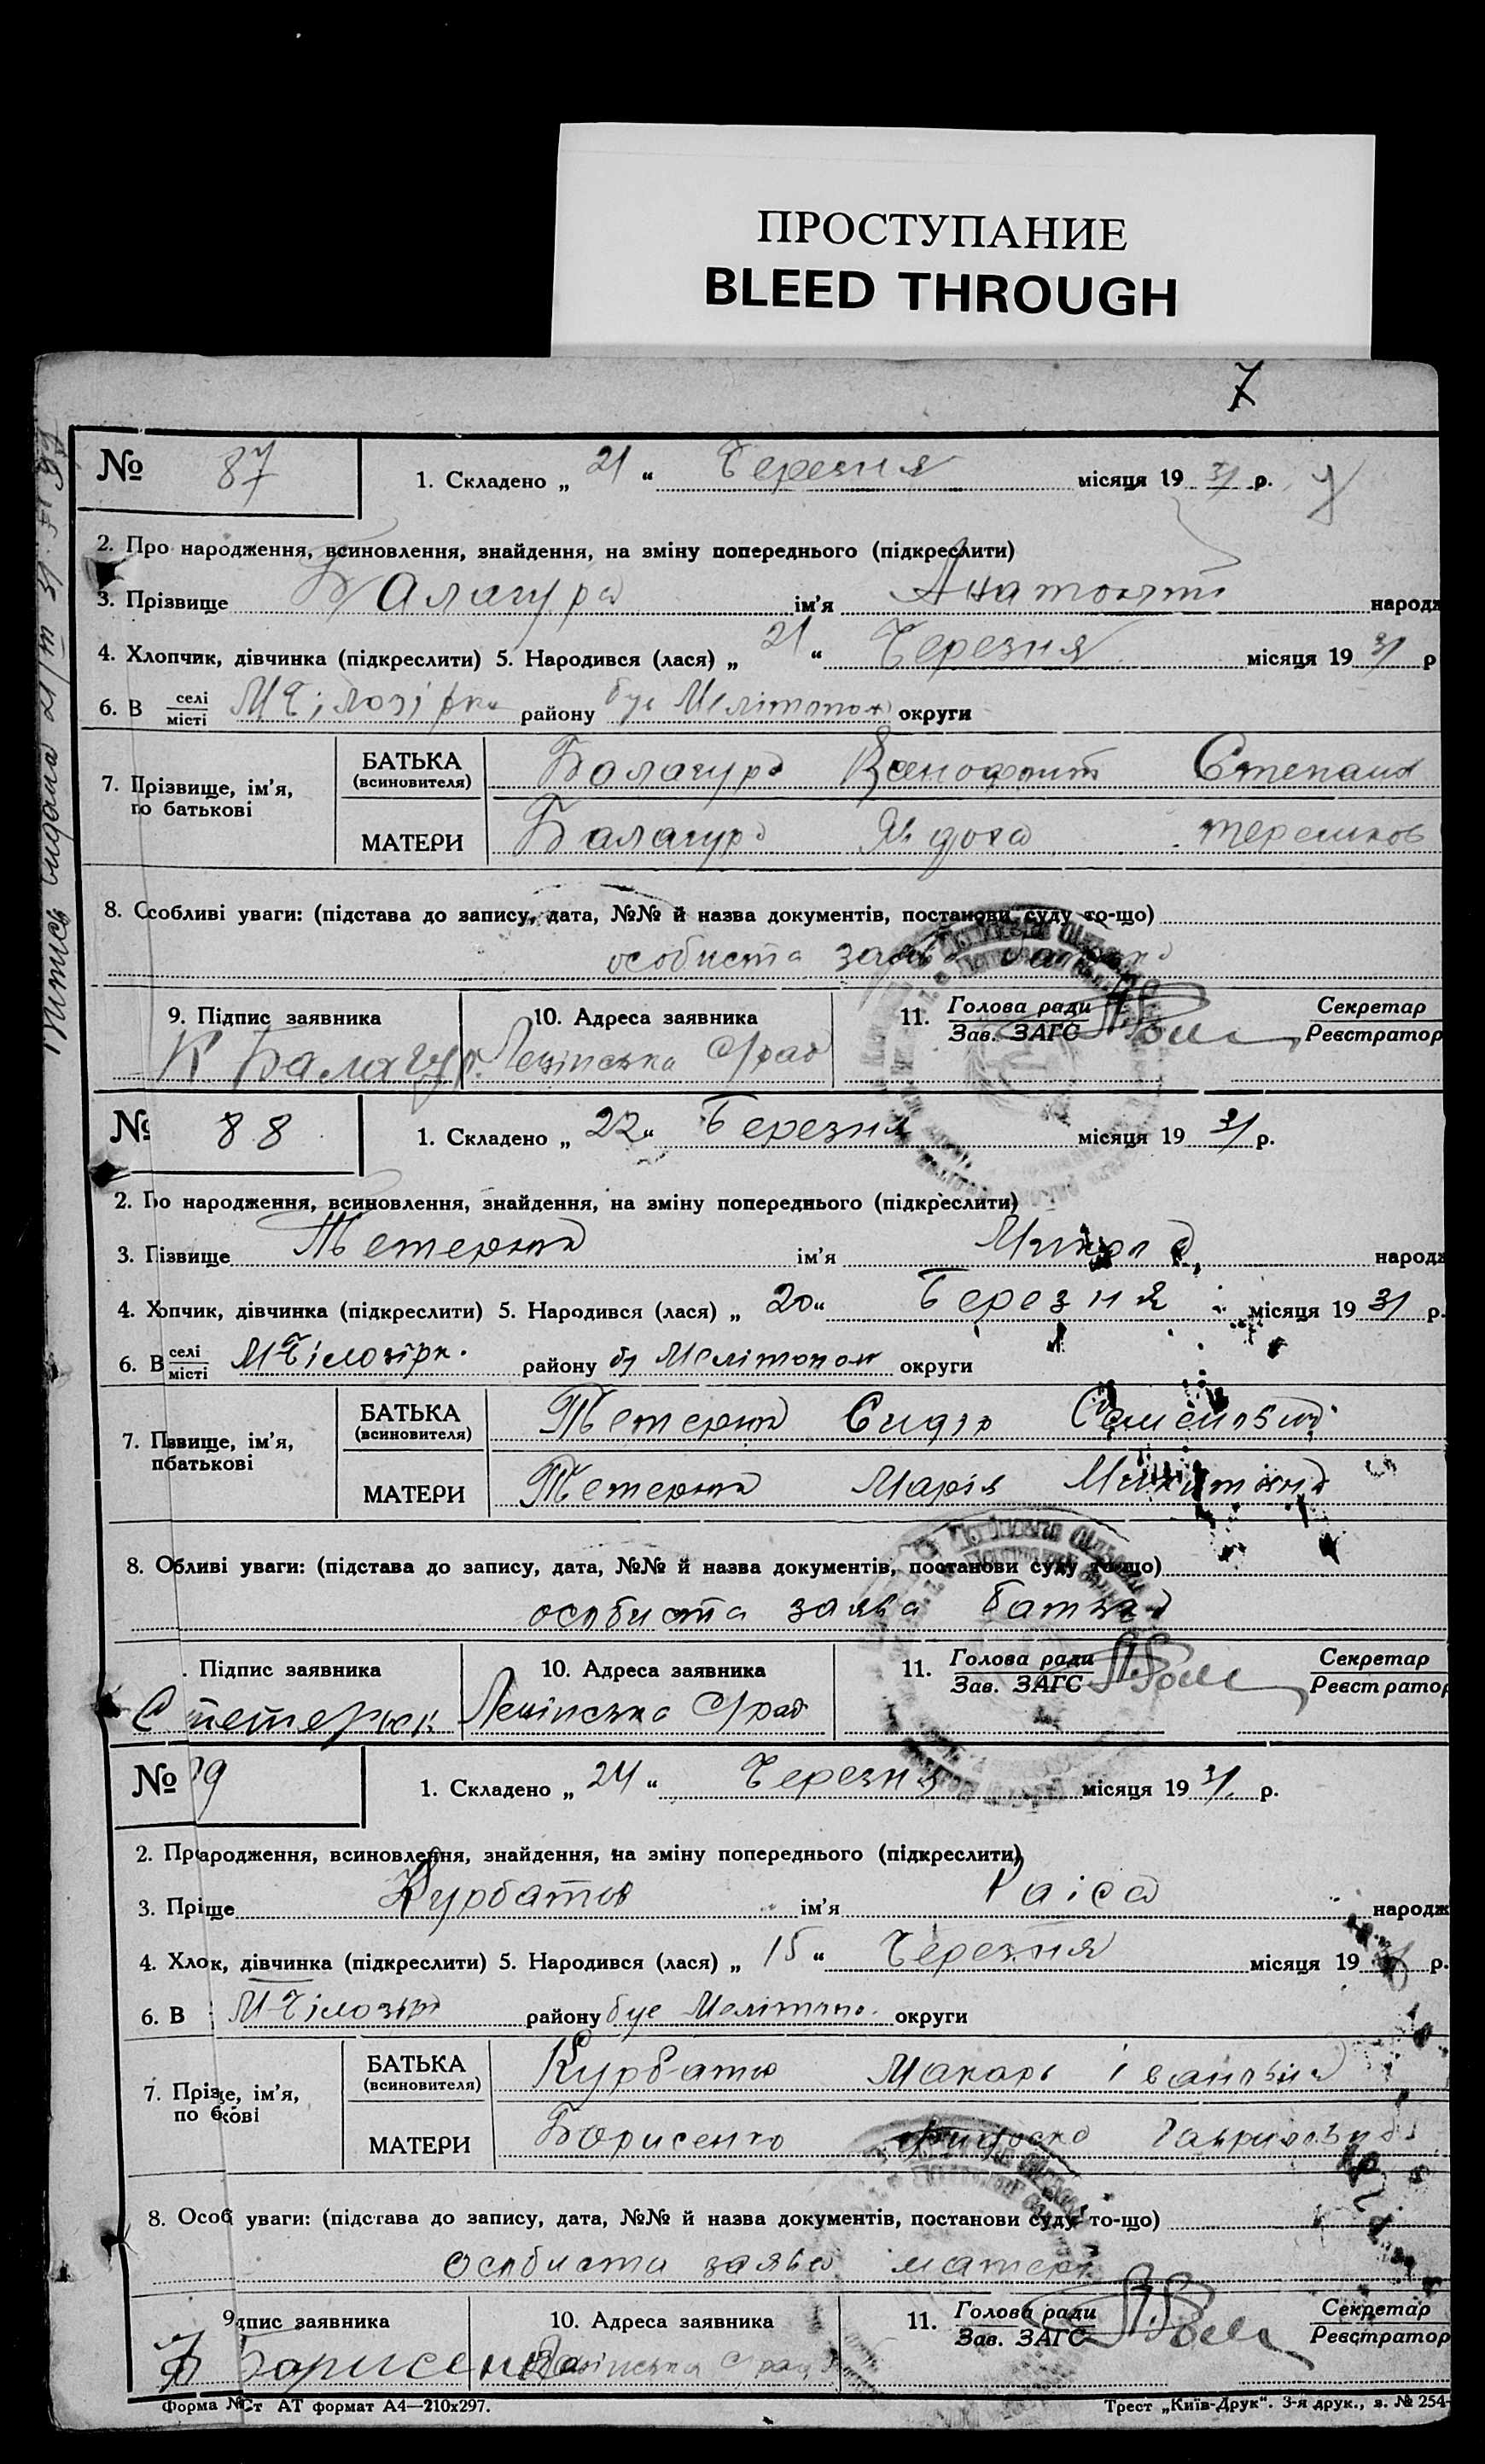 ПРОСТУПАНИЕ
BLEED THROUGH
7
№ 87 1. Складено „ 21 “ Березня місяця 19 31 р.
2. Про народження, всиновлення, знайдення, на зміну попереднього (підкреслити)
3. Прізвище Балагура ім'я Анатолій народ
4. Хлопчик, дівчинка (підкреслити) 5. Народився (лася) „ 21 “ Березня місяця 19 31 р
6. В селі місті М Білозірка району був Мелітопол округи
7. Прізвище, ім'я, по батькові
БАТЬКА (всиновителя) Балагура Степанов
МАТЕРИ Балагура Явдоха
8. Особливі уваги: (підстава до запису, дата, №№ й назва документів, постанови суду то-що)
особиста заява батька
9. Підпис заявника 10. Адреса заявника 11. Голова ради Зав. ЗАГС Секретар Реєстратор
К Балагур Ленінська С/рад
№ 88 1. Складено „ 22 “ Березня місяця 19 31 р.
2. о народження, всиновлення, знайдення, на зміну попереднього (підкреслити)
3. П ізвище Тетерюк ім'я Микола народ
4. Х опчик, дівчинка (підкреслити) 5. Народився (лася) „ 20 “ Березня місяця 19 31 р.
6. В селі місті М Білозірк. району бу Мелітопол округи
7. П звище, ім'я, п батькові
БАТЬКА (всиновителя) Тетерюк Сидір Семенович
МАТЕРИ Тетерюк Марія Микитовна
8. О бливі уваги: (підстава до запису, дата, №№ й назва документів, постанови суду то-що)
особиста заява батька
. Підпис заявника 10. Адреса заявника 11. Голова ради Зав. ЗАГС Секретар Реєстратор
С Тетерюк Ленінська С/рад
№ 9 1. Складено „ 24 “ Березня місяця 19 31 р.
2. Пр ародження, всиновлення, знайдення, на зміну попереднього (підкреслити)
3. Прі ще Курбатов ім'я Раіса народж
4. Хло к, дівчинка (підкреслити) 5. Народився (лася) „ 15 “ Березня місяця 19 31 р.
6. В М Білозір району був Мелітопо. округи
7. Пріз е, ім'я, по б кові
БАТЬКА (всиновителя) Курбатов Макарь Іванович
МАТЕРИ Борисенко Гавриловна
8. Особ уваги: (підстава до запису, дата, №№ й назва документів, постанови суду то-що)
особиста заява матері
9 дпис заявника 10. Адреса заявника 11. Голова ради Зав. ЗАГС Секретар Реєстратор
Борисенко Ленінська С/рад
Форма № Ст АТ формат А4—210х297. Трест „Київ-Друк“. 3-я друк., з. № 254-